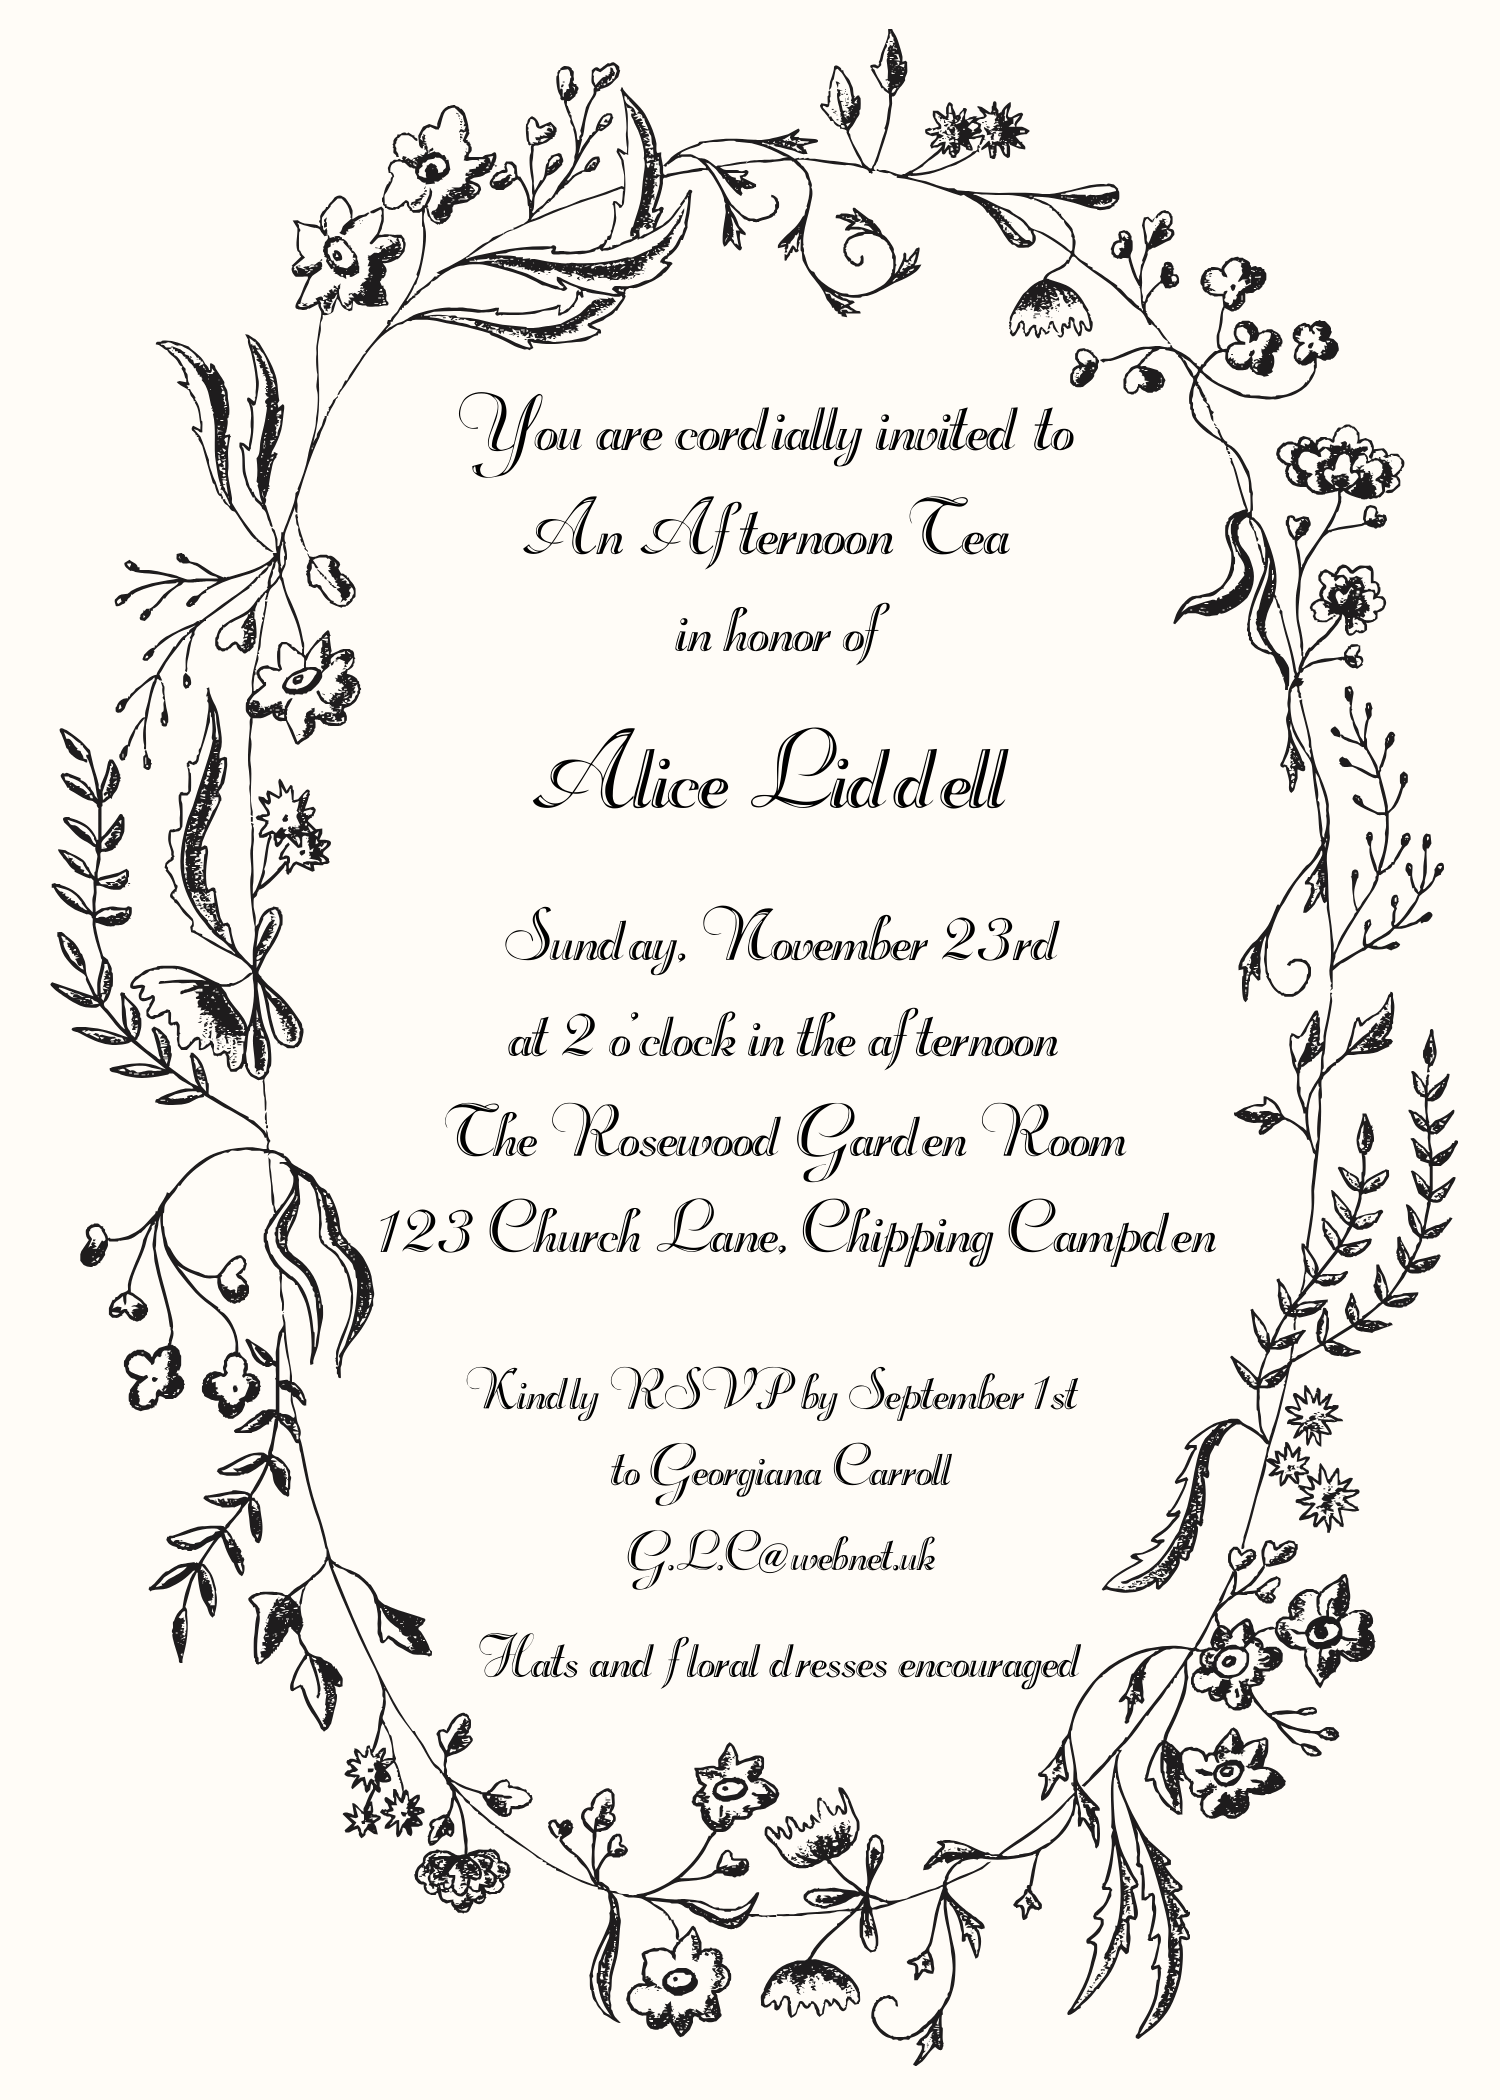 You are cordially invited to
An Afternoon Tea
in honor of
Alice Liddell
Sunday, November 23rd
at 2 o'clock in the afternoon
The Rosewood Garden Room
123 Church Lane, Chipping Campden
Kindly RSVP by September 1st
to Georgiana Carroll
G.L.C@webnet.uk
Hats and floral dresses encouraged